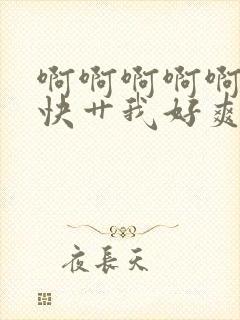 啊啊啊啊啊
快艹我好爽
夜長天